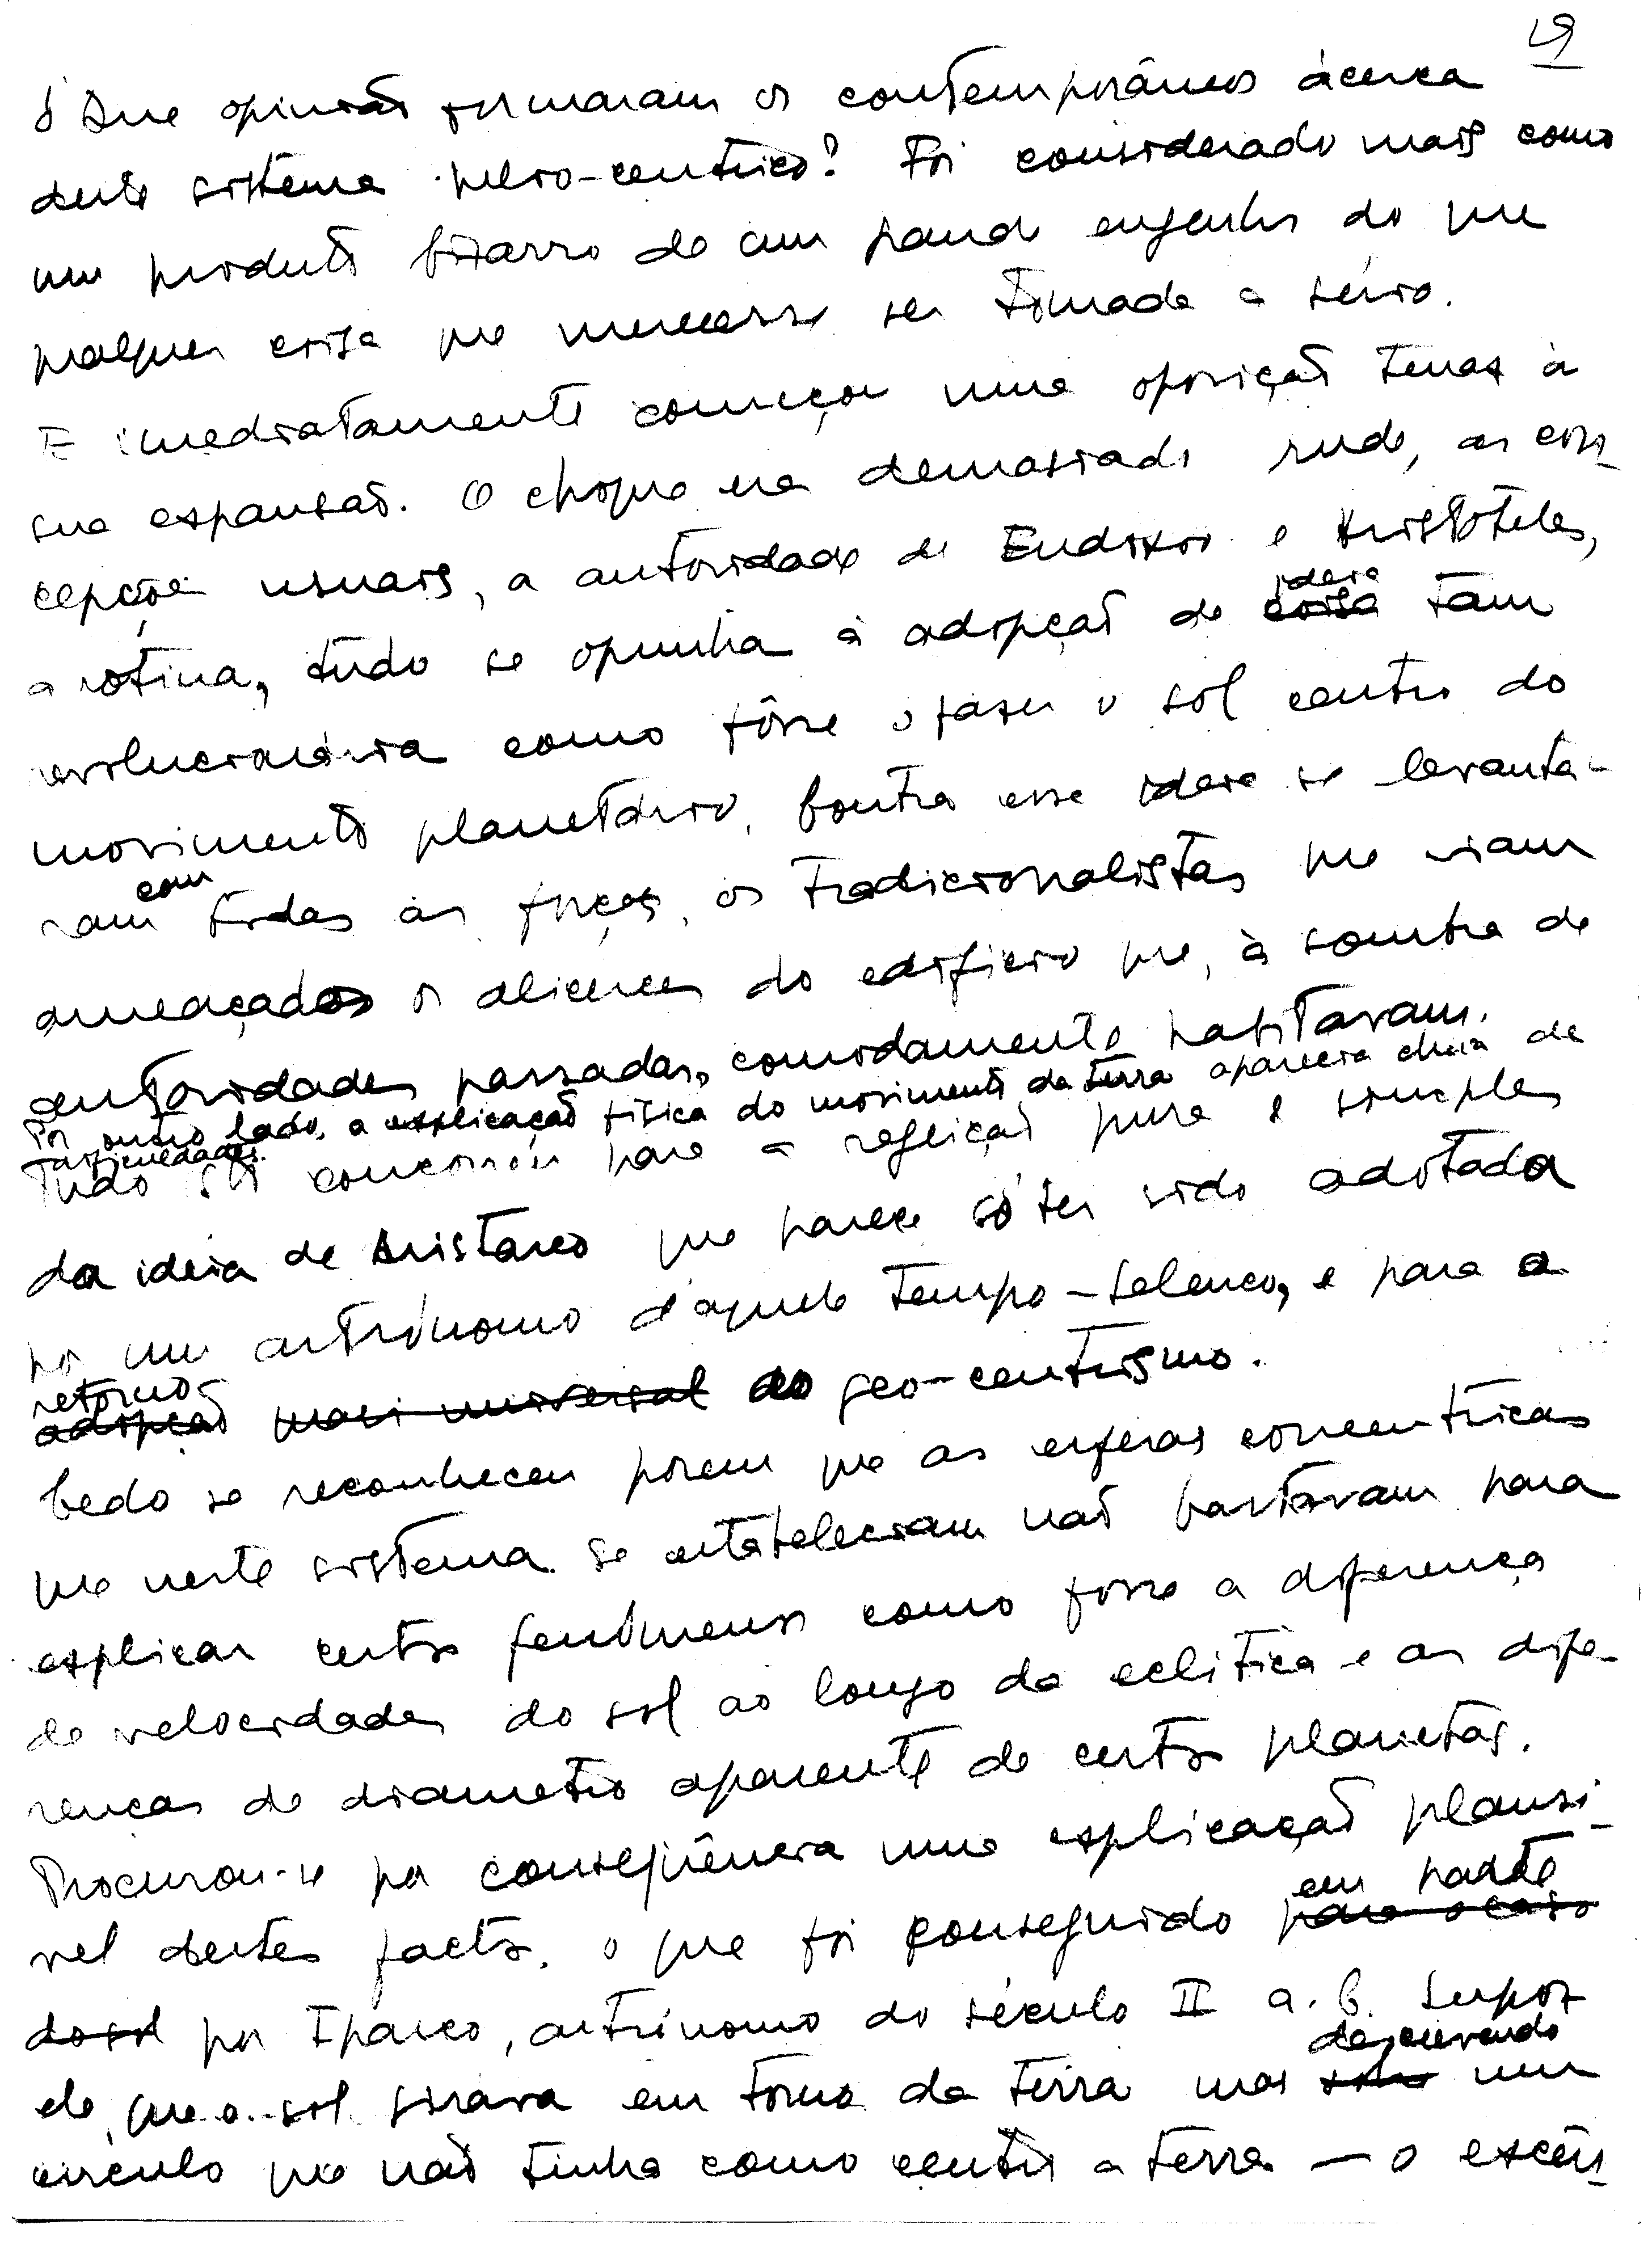 19
¿Que opinião formaram os contemporâneos àcerca
deste sistema helio-centrico? Foi considerado mais como
um produto bizarro de um grande engenho do que
qualquer coisa que merecesse ser tomada a sério.
E imediatamente começou uma oposição tenaz à
sua expansão. O choque era demasiado rude, as con-
cepções usuais, a autoridade de Eudoxio e Aristóteles,
a rotina, tudo se opunha à adopção de ~~coisa~~ ideia tam
revolucionária como fôsse o fazer o sol centro do
movimento planetário. Contra essa ideia se levanta-
ram com todas as forças, os tradicionalistas que viam
ameaçados os alicerces do edifício que, à sombra de
autoridades passadas, comodamente habitavam.
Por outro lado, a explicação física do movimento da terra aparecia cheia de
dificuldades.
Tudo isto concorreu para a rejeição pura e simples
da ideia de Aristarco que parece só ter sido adotada
por um astrónomo d'aquele tempo - Seleuco, e para a
retorno
~~adopção mais universal~~ ao geo-centrismo.
Cedo se reconheceu porem que as esferas concentricas
que neste sistema se estabeleciam não bastavam para
explicar certos fenómenos como fosse a diferença
de velocidades do sol ao longo da eclitica e as dife-
renças de diametro aparente de certos planetas.
Procurou-se por conseqüência uma explicação plausi-
vel destes factos, o que foi conseguido em parte ~~para o caso~~
~~do sol~~ por Iparco, astrónomo do século II a. C. Supoz
ele, que o sol girava em torno da terra mas descrevendo um
circulo que não tinha como centro a terra — o excên-